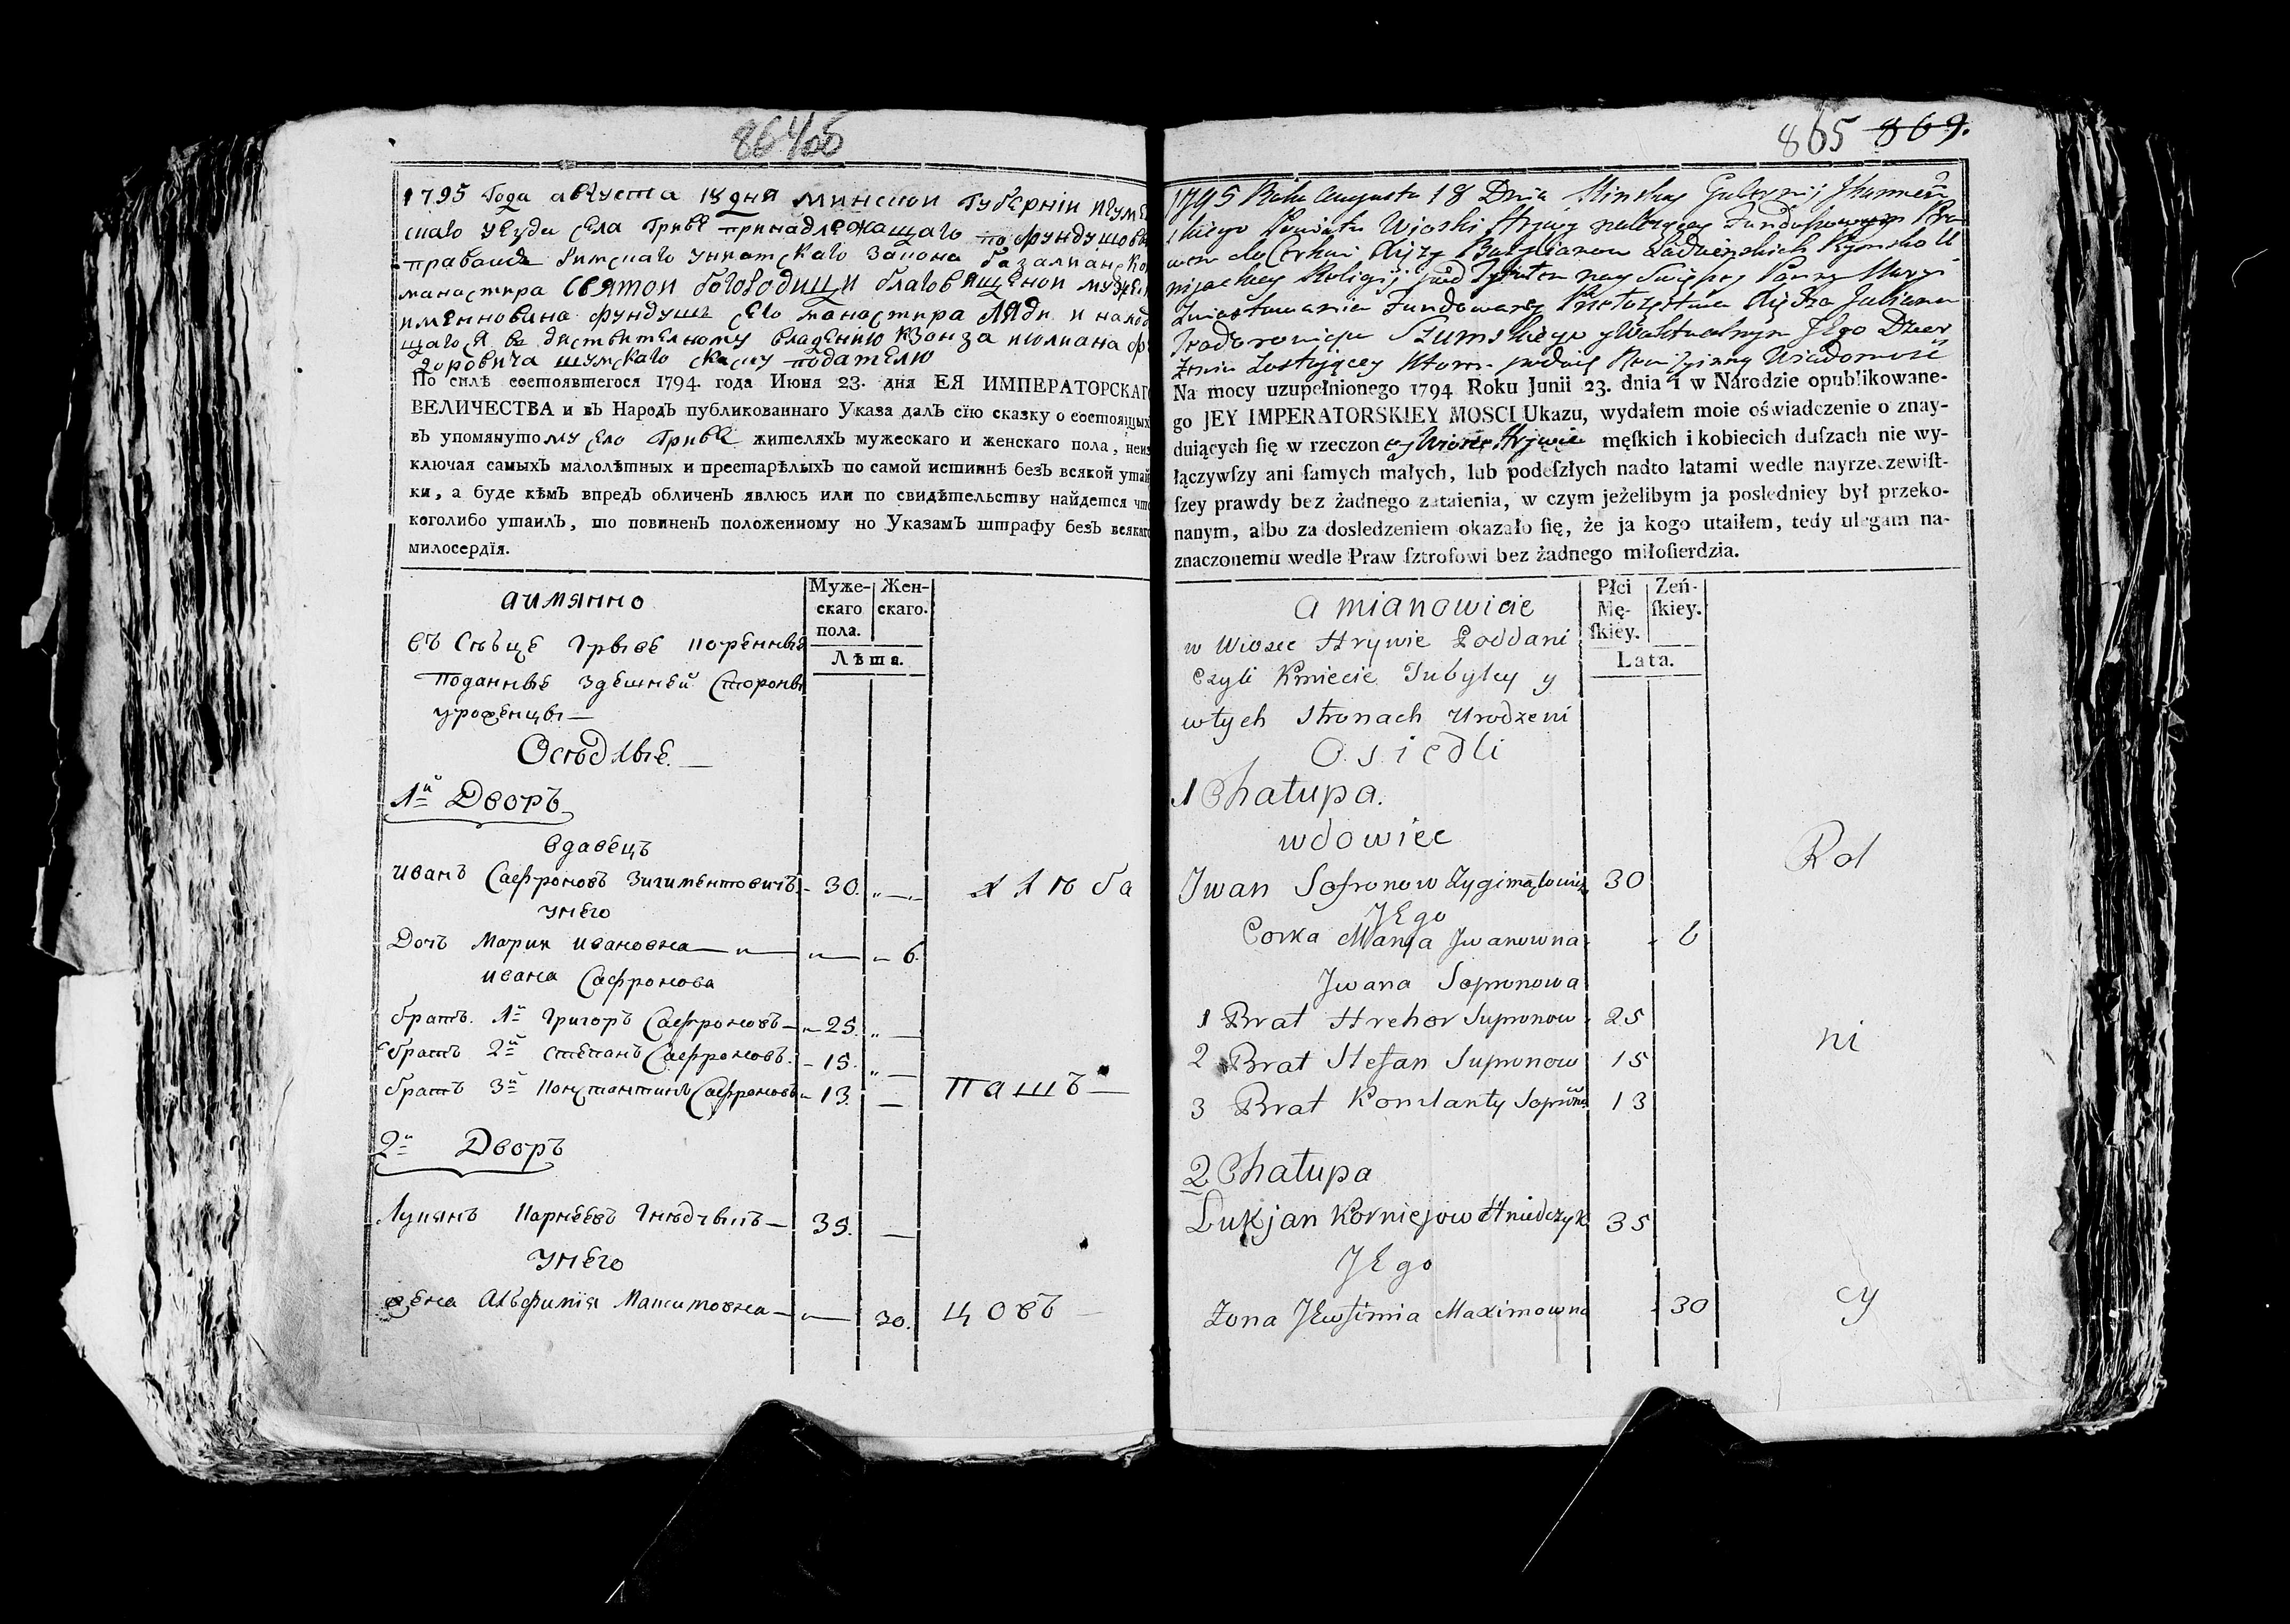 864об
1795 Года августа 18 дня Минской Губернiи Игуме
скаго уезда села Гривѣ принадлежащаго по фундушовы
праваиъ Римскаго Униатскаго Закона базалианско
манастира святой богородици благовищеной
именнована фундуша сего манастира Ляди и наход
щагося в диствителному владению Ксонза июлиана Фе
доровича шумскаго скаску подателю
По силѣ состоявшегося 1794. года Июня 23. дня ЕЯ ИМПЕРАТОРСКАГ
ВЕЛИЧЕСТВА и въ Народъ публикованнаго Указа далъ сїю сказку о состоящых
въ упомянутому село Гривѣ жителяхъ мужескаго и женскаго пола, неис
ключая самыхъ малолѣтных и престарѣлыхъ по самой истиннѣ безъ всякой утай
ки, а буде кѣмъ впредъ обличенъ явлюсь или по свидѣтельству найдется что
коголибо утаилъ, то повиненъ положенному по Указамъ штрафу безъ всякаго
милосердїя.
аимянно
Муже-скаго пола. Жен-скаго.
Лѣта.
въ Сѣлце Грыве коренные
поданные здешней стороны
уроженцы—
Оседлые.—
1й Дворъ
вдавецъ
иванъ Сафроновъ Зигиментовичъ - 30. „—„ хлѣба
унего
Дочь Мария ивановна — „ — „ — 6.
ивана Сафронова
братъ. 1й Григоръ Сафроновъ — „ 25. „ —
братъ 2й степанъ Сафроновъ. - 15. „ —
братъ 3й Константинъ Сафроновъ „ 13. — пашъ —
2й Дворъ
Лукянъ Карнеевъ Гнѣдчыкъ — 35. —
унего
жена Альфимiя Максимовна — „ — 30. цовъ —
865 869.
1795 Roku Augusta 18 Dnia Minskey Gubernij Jhumeń
skiego Powiatu Wioski Hrywy należącey Fundushowym Pra
wem do Cerkwi Xięży Bazylianow Ladzieńskich Rzymsko U
nijackiey Religij pod Tytułem nayświęszey Panny Maryi
Zwiastowania Fundowaney Xiedza Juliana
Teodorowicza Szumskiego y Waktualnym JEgo Dzier
żeniu Zostającey Wiadomość
Na mocy uzupełnionego 1794 Roku Junii 23. dnia i w Narodzie opublikowane-
go JEY IMPERATORSKIEY MOSCI Ukazu, wydałem moie oświadczenie o znay-
duiących ſię w rzeczoney Wiosce Hrywie męſkich i kobiecich duſzach nie wy-
łączywſzy ani ſamych małych, lub podeſzłych nadto latami wedle nayrzeczewiſt-
ſzey prawdy bez żadnego zataienia, w czym jeżelibym ja poslednicy był przeko-
nanym, albo za dosledzeniem okazało ſię, że ja kogo utaiłem, tedy ulegam na-
znaczonemu wedle Praw ſztrofowi bez żadnego miłoſierdzia.
A mianowicie
Płci Mę-ſkiey. Zeń-ſkiey.
Lata.
w Wiosce Hrywie Poddani
czyli Kmiecie Tubylcy y
wtych Stronach Urodzeni
Osiedli
1 Chałupa.
wdowiec
Jwan Sofronow Zygimątowicz 30 Rol
JEgo
Corka Marya Jwanowna 6
Jwana Sopronowa
1 Brat Hrehor Supronow 25
2 Brat Stefan Supronow 15 ni
3 Brat Konstanty Sopron 13
2 Chałupa
Łukjan Korniejow Hniedczyk 35
JEgo
Żona JEwfimia Maximowna 30 cy